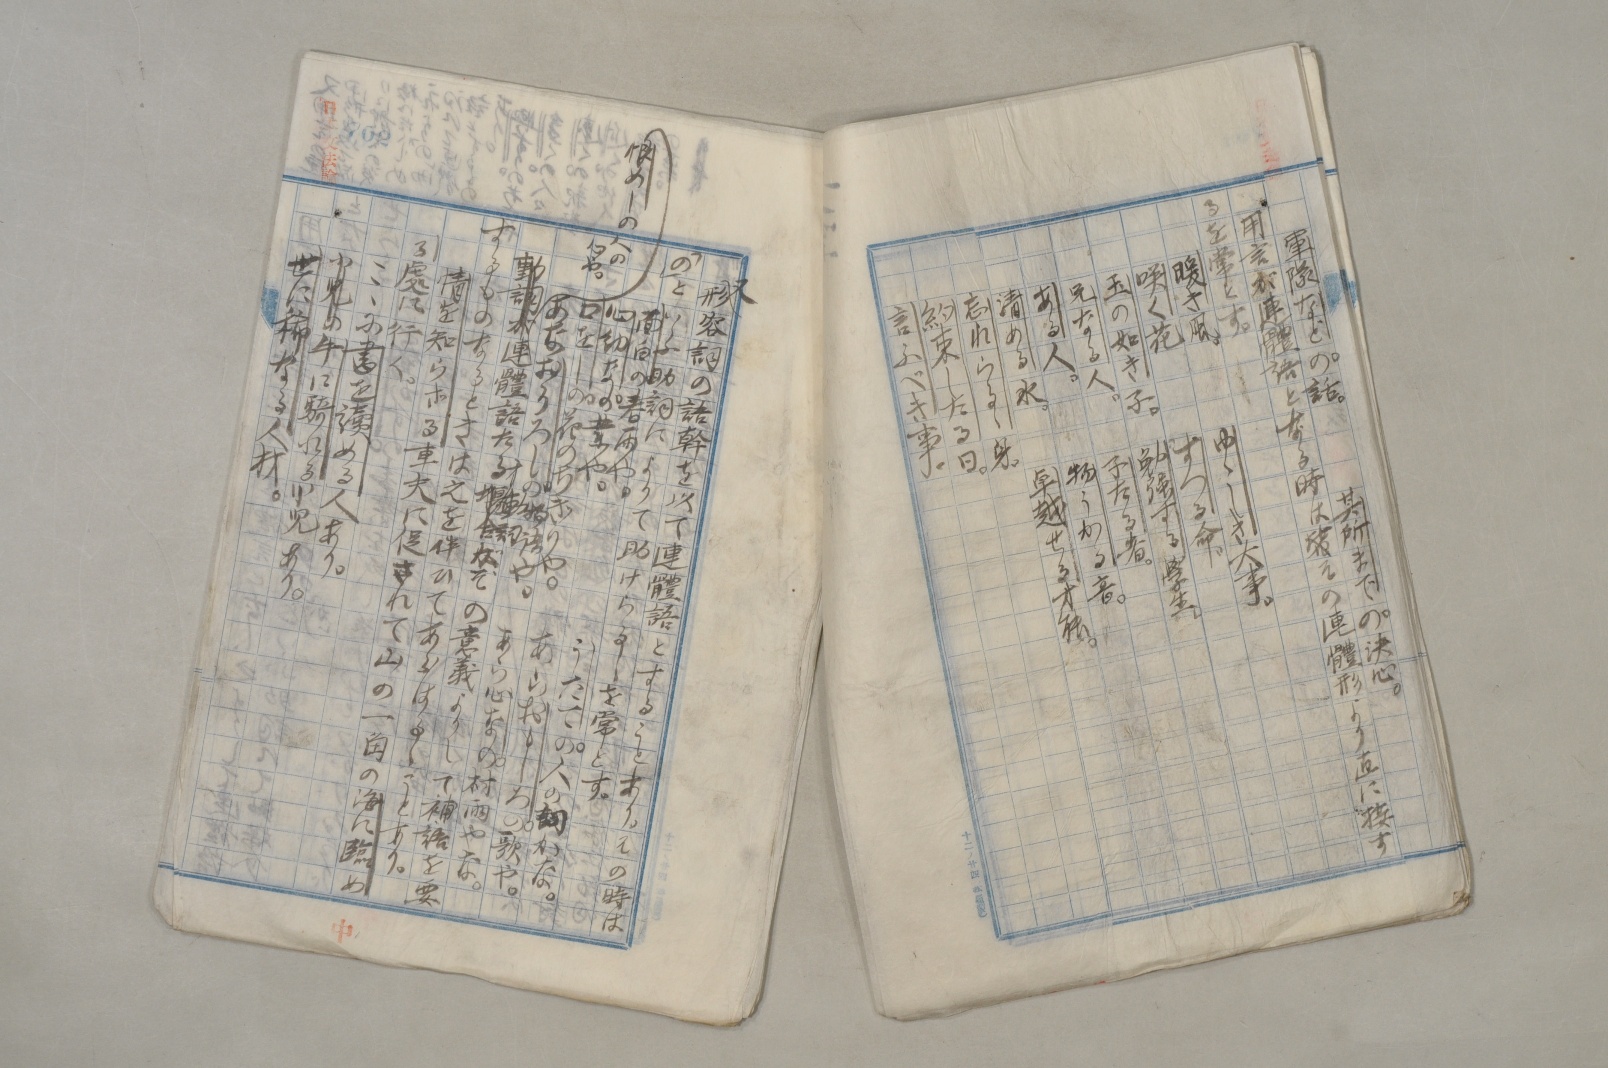 軍隊などの。話。　其所までの。決心。
用言が連體語となる時は確その連體形より直に接す
るを常とす。
暖き風。　ゆゝしき大事。
咲く花　すつる命。
玉の如き子。　勉强する學生。
兄なる人。　子たる者。
ある人。　物うかる音。
清める水。　卓越せる才能。
忘れらるゝ身。
約束したる日。
言ふべき事。
又
形容詞の語幹を以て連體語とすることあり。この時は
のといふ助詞によりて助けらるゝを常とす。
面白の春雨や。　うたての。人の詞かな。
心幼なの業や。　あらおもしろの。歌や。
口をしの花のちぎりや。　あら心なの。村雨やな。
あなおそろしの物語や。
恨めしの人の心や。
動詞が連體語たる場合にその意義よりして補語を要
するものなるときは之を伴ひてあらはるゝことあり。
情を知らざる車夫に促されて山の一角の海に臨め
る處に行く。
こゝに書を讀める人あり。
小兒の牛に騎れる小兒あり。
世に稀なる人材。
中